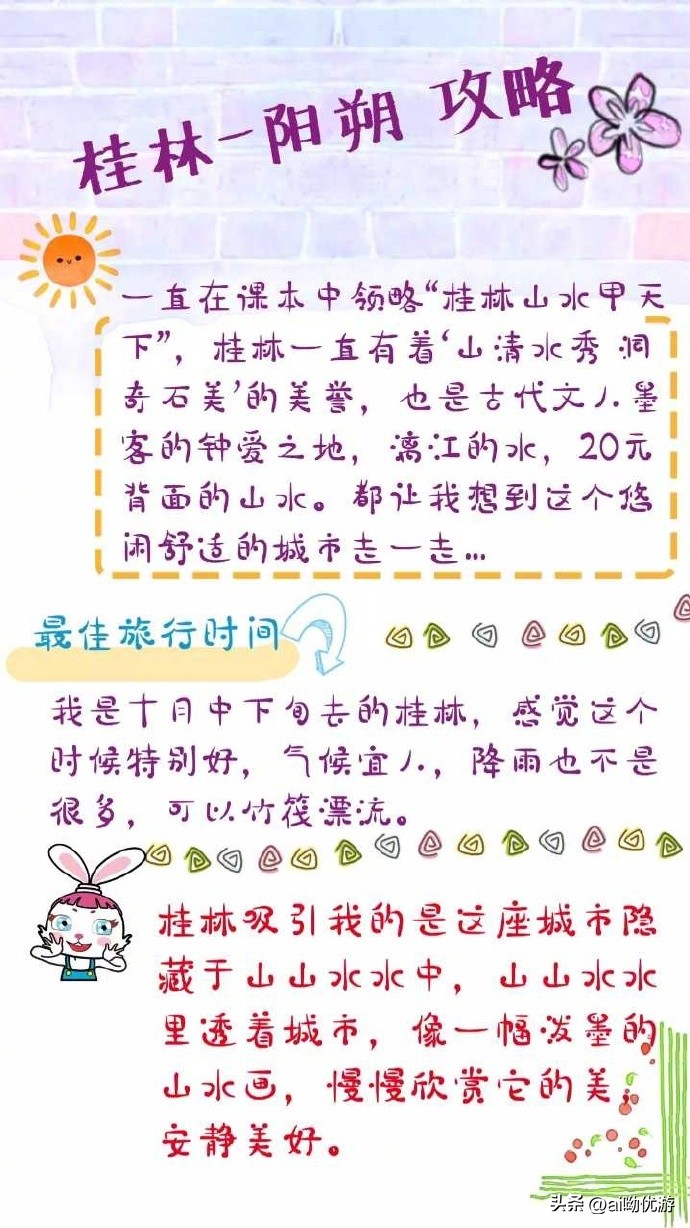 桂林-阳朔 攻略
一直在课本中领略“桂林山水甲天
下”，桂林一直有着‘山清水秀 洞
奇石美’的美誉，也是古代文人墨
客的钟爱之地，漓江的水，20元
背面的山水。都让我想到这个悠
闲舒适的城市走一走...
最佳旅行时间
我是十月中下旬去的桂林，感觉这个
时候特别好，气候宜人，降雨也不是
很多，可以竹筏漂流。
桂林吸引我的是这座城市隐
藏于山山水水中，山山水水
里透着城市，像一幅泼墨的
山水画，慢慢欣赏它的美，
安静美好。
头条 @ai呦优游